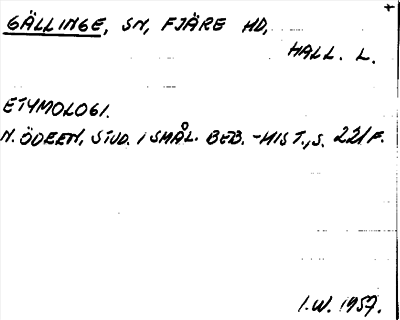 GÄLLINGE, SN, FJÄRE HD,
HALL. L.
ETYMOLOGI.
N. ÖDEEN, STUD. I SMÅL. BEB.-HIST., S. 221F.
I.W. 1957.